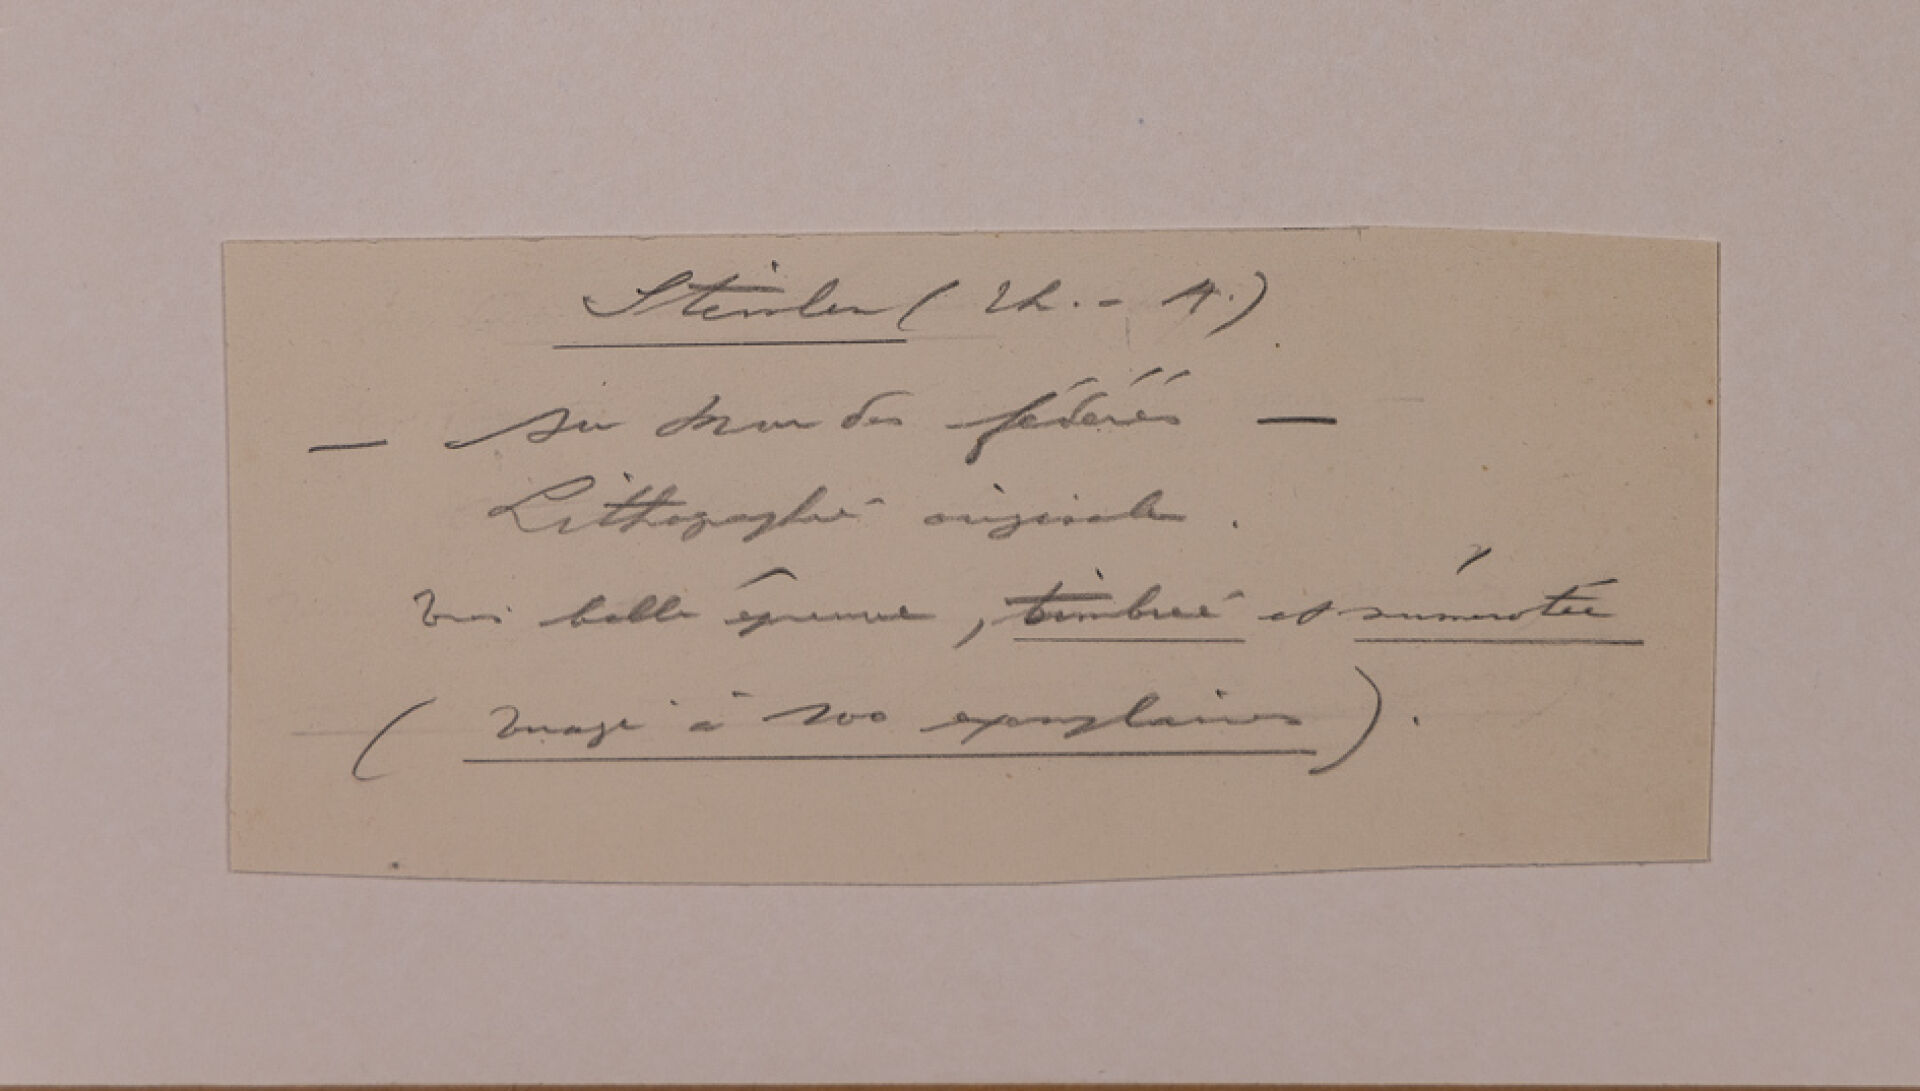 Steinlen (Th. - A.)
— Au Mur des fédérés —
Lithographie originale.
Très belle épreuve, timbrée et numérotée
(Tirage à 100 exemplaires).